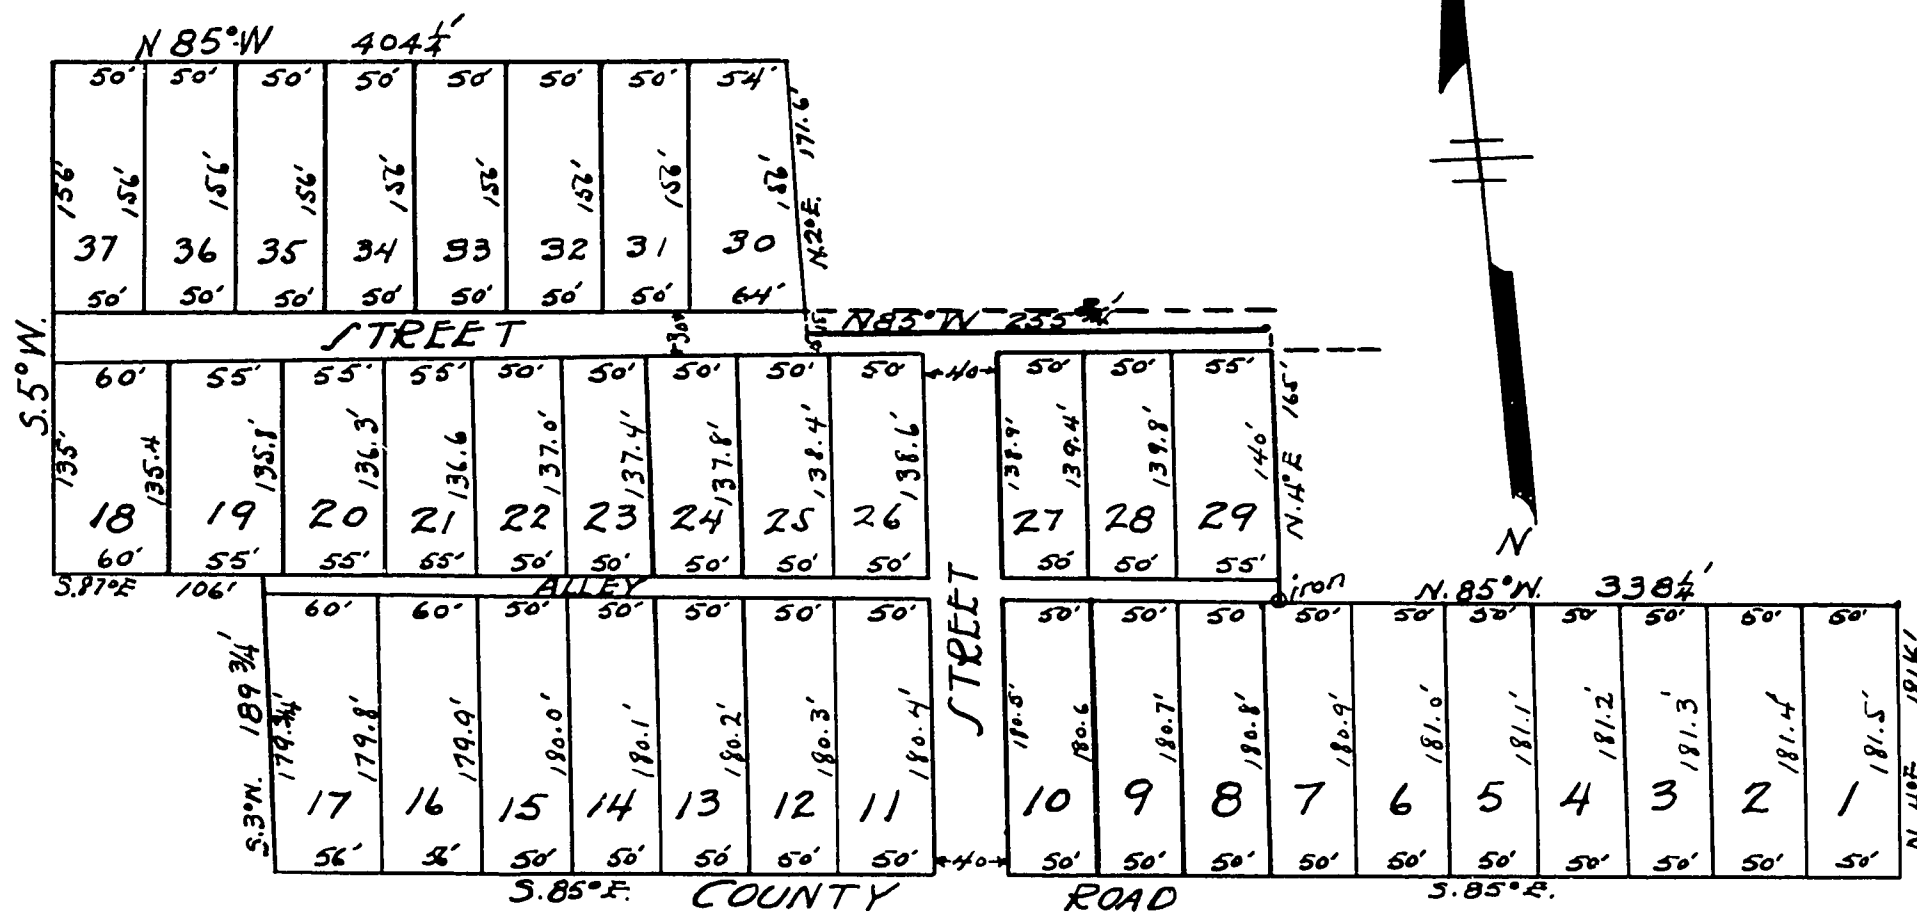 N 85° W 404 1/4'
50' 50' 50' 50' 50' 50' 50' 54'
156' 156' 156' 156' 156' 156' 156' 156' 156'
N.2°E. 171.6'
37 36 35 34 33 32 31 30
50' 50' 50' 50' 50' 50' 50' 64'
STREET 30' 15'
N85°W 255
S.5°W.
60' 55' 55' 55' 50' 50' 50' 50' 50' 40 50' 50' 55'
135' 135.4 135.8' 136.3' 136.6 137.0' 137.4' 137.8' 138.4' 138.6' 138.9' 139.4' 139.8' 140'
N.4°E 165'
18 19 20 21 22 23 24 25 26 27 28 29
60' 55' 55' 55' 50' 50' 50' 50' 50' 50' 50' 55'
N
S.87°E 106'
ALLEY
iron
N. 85°W. 338 1/4'
60' 60' 50' 50' 50' 50' 50' 50' 50' 50 50' 50' 50' 50' 50' 50' 50'
STREET
S.3°W. 189 3/4'
179.8' 179.9' 180.0' 180.1' 180.2' 180.3' 180.4' 180.5' 180.6 180.7' 180.8' 180.9' 181.0' 181.1' 181.2' 181.3' 181.4' 181.5'
17 16 15 14 13 12 11 10 9 8 7 6 5 4 3 2 1
56' 56' 50' 50' 50' 50' 50' 40 50' 50' 50' 50' 50' 50' 50' 50' 50' 50'
S.85°E. COUNTY ROAD S.85°E.